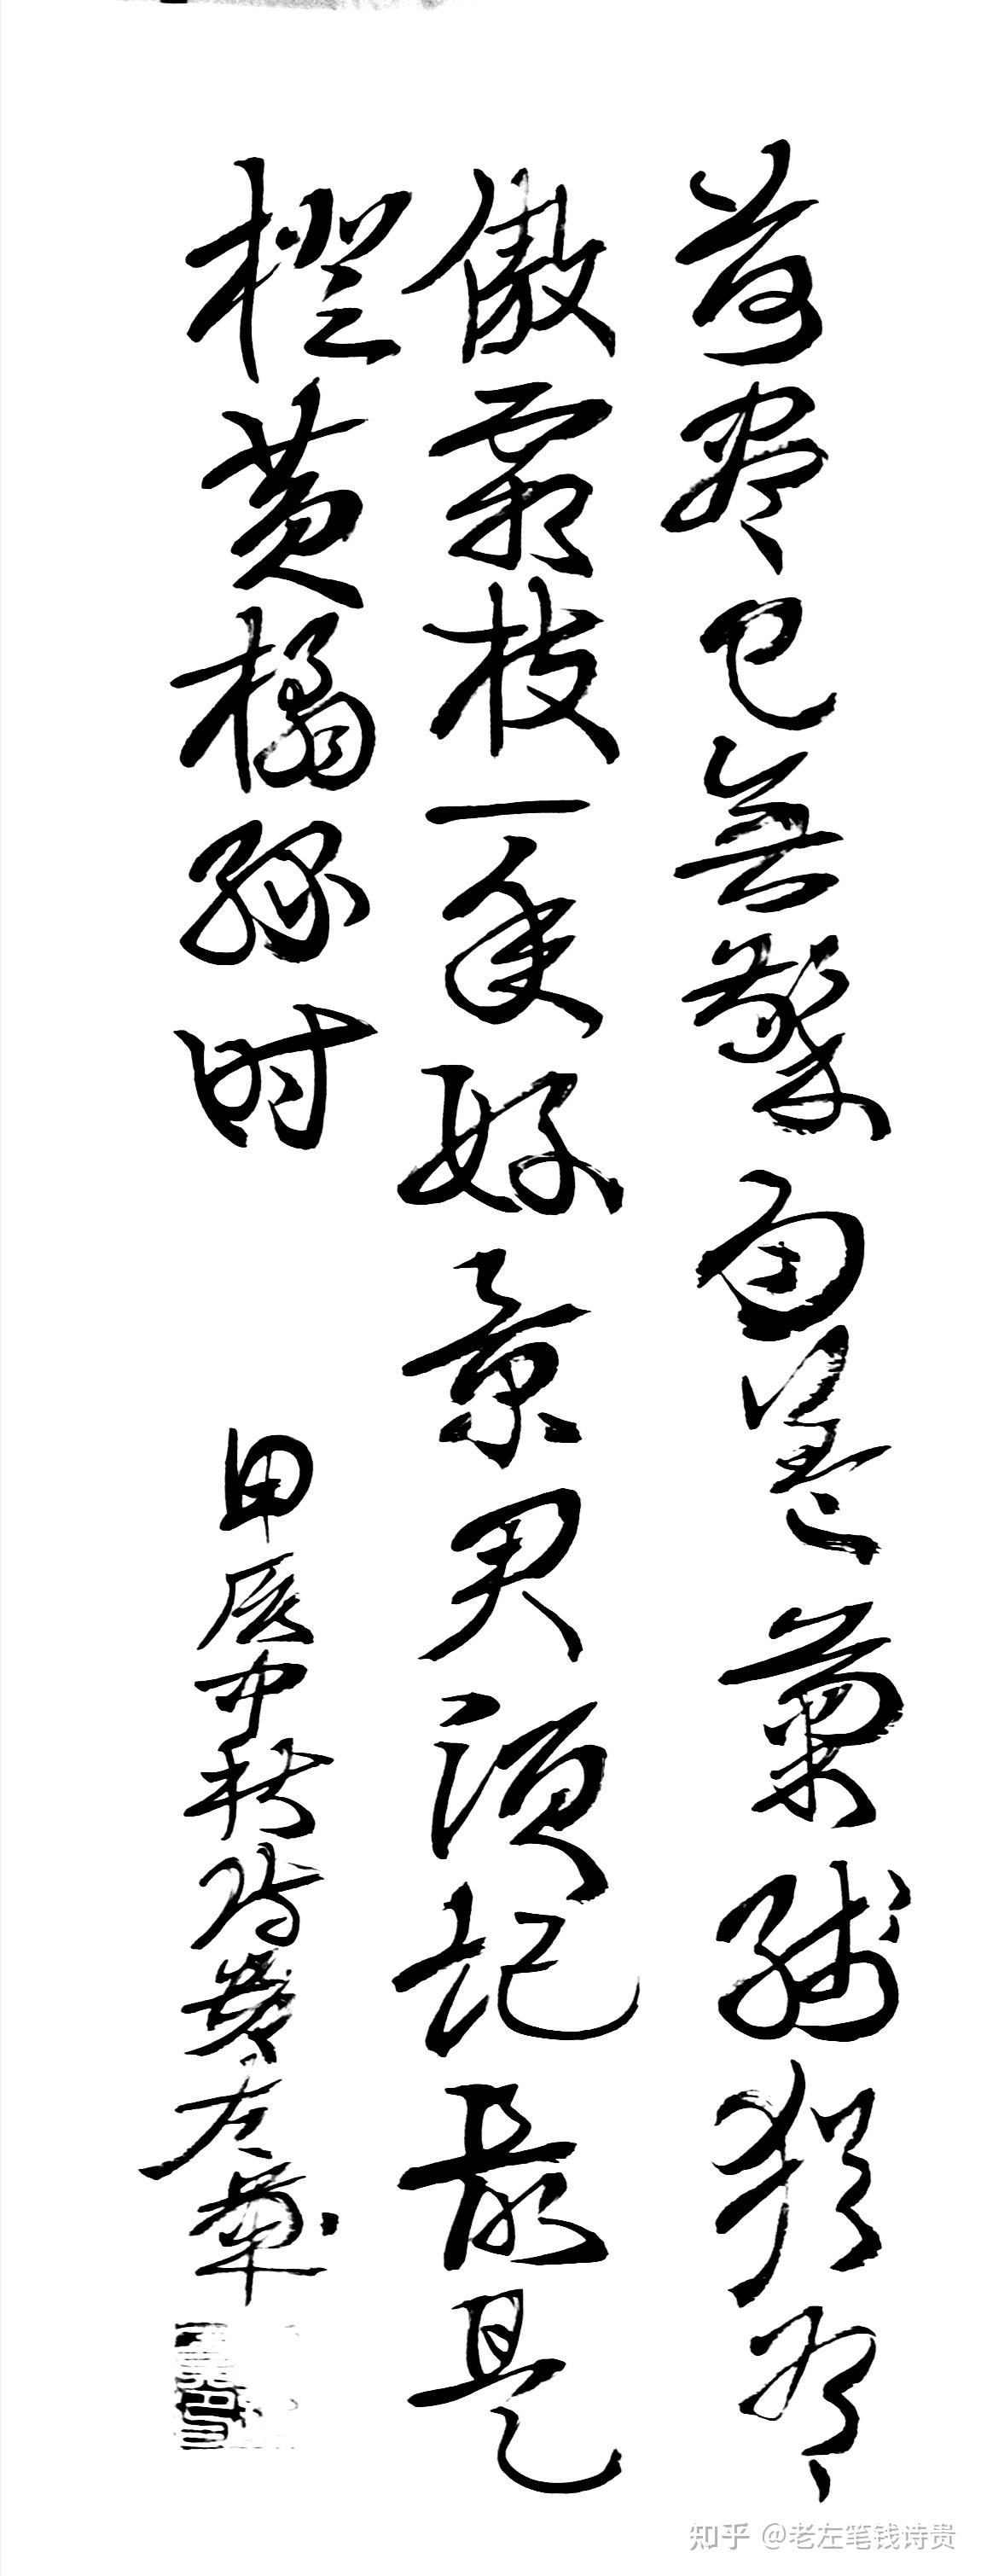 荷尽已無擎雨蓋菊残猶有
傲霜枝一年好景君須記最是
橙黄橘绿时
甲辰中秋時發左華
知乎 @老左笔钱诗贵